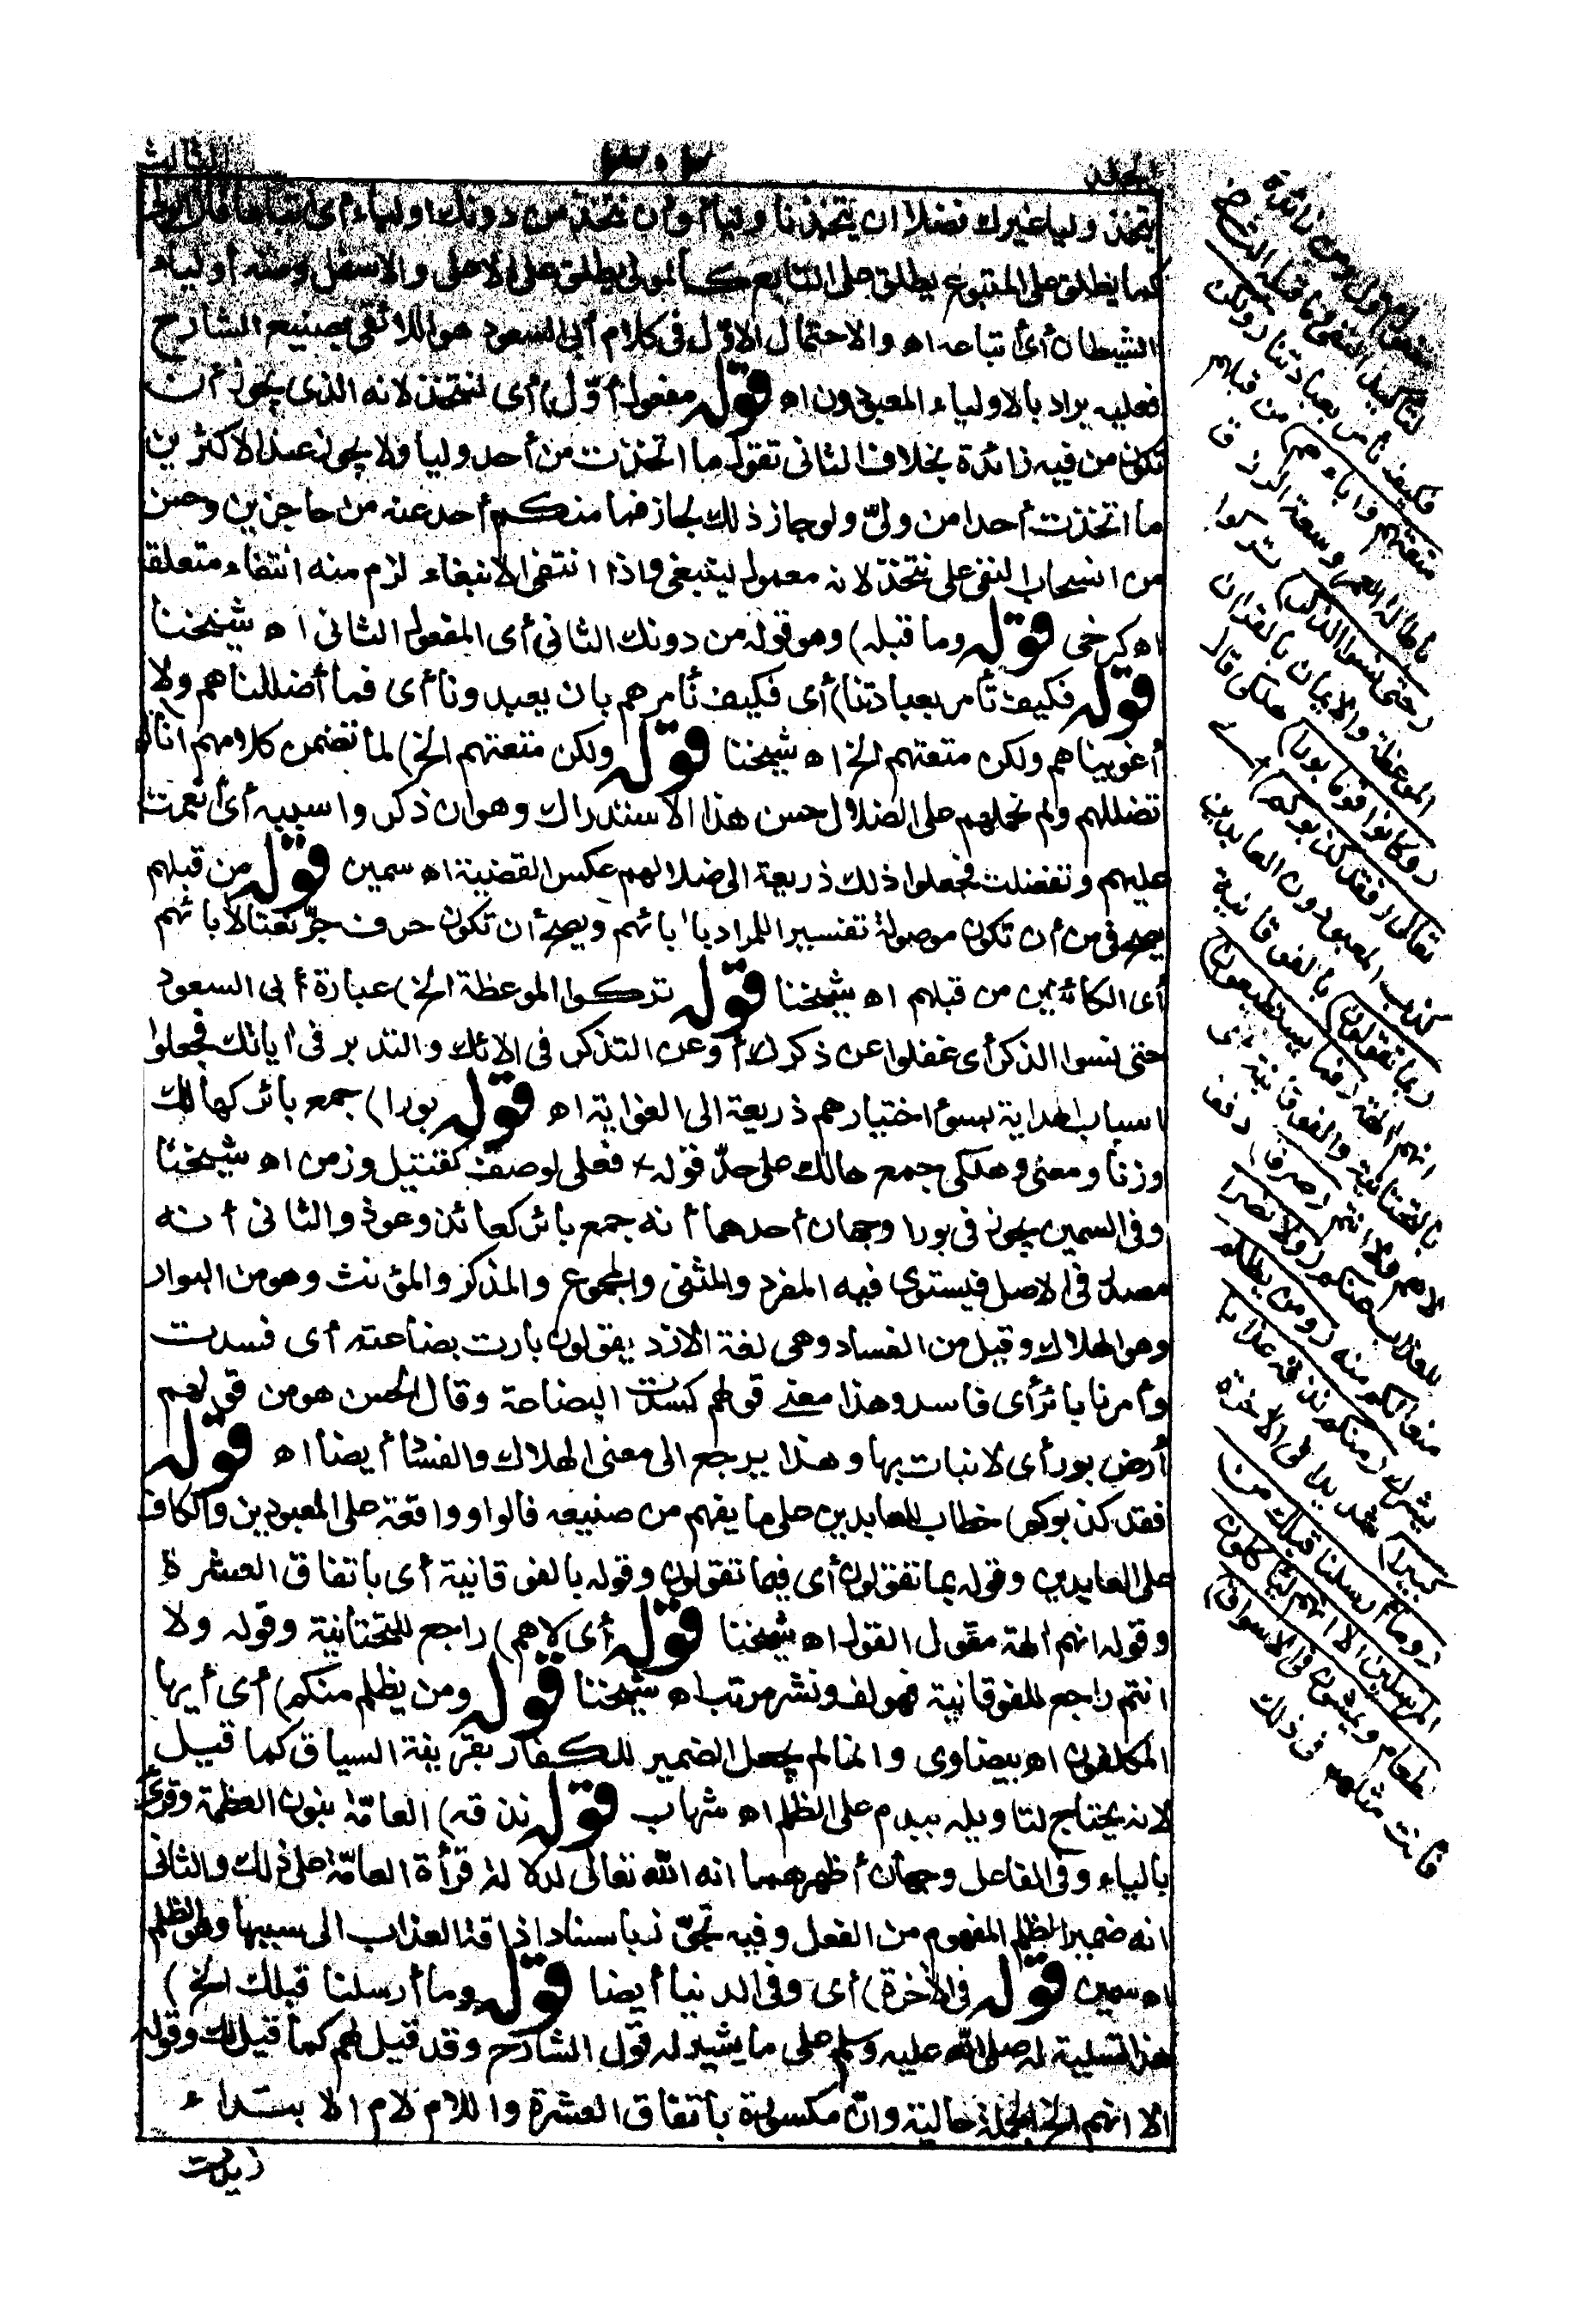 المجلد
٣٠٢
الثالث
يتخذ وليا غيرك فضلا ان يتخذنا وليا أو أن نتخذ من دونك اولياء أى اتباعا فان الولى
كما يطلق على المتبوع يطلق على التابع كالمولى يطلق على الاعلى والاسفل ومنه أولياء
الشيطان أى أتباعه اه والاحتمال الاوّل فى كلام أبى السعود هو اللائق بصنيع الشارح
فعليه يراد بالاولياء المعبودون اه قوله مفعول أوّل) أى لنتخذ لانه الذى يجوز أن
تكون من فيه زائدة بخلاف الثانى تقول ما اتخذت من أحد وليا ولا يجوز عند الاكثرين
ما اتخذت أحدا من ولىّ ولو جاز ذلك لجاز فما منكم أحد عنه من حاجزين وحسن
من انسحاب النفى على نتخذ لانه معمول لينبغى واذا انتفى الانبغاء لزم منه انتفاء متعلقه
اه كرخى قوله وما قبله) وهو قوله من دونك الثانى أى المفعول الثانى اه شيخنا
قوله فكيف تأمر بعبادتنا) أى فكيف نأمرهم بان يعبدونا أى فما أضللناهم ولا
أغويناهم ولكن متعتهم الخ اه شيخنا قوله ولكن متعتهم الخ) لما تضمن كلامهم انا لم
نضللهم ولم نحملهم على الضلال حسن هذا الاستدراك وهو ان ذكروا سببه أى أنعمت
عليهم وتفضلت فجعلوا ذلك ذريعة الى ضلالهم عكس القضية اه سمين قوله من قبلهم
يصح فى من أن تكون موصولة تفسيرا للمراد بآبائهم ويصح أن تكون حرف جرّ نعتا لآبائهم
أى الكائنين من قبلهم اه شيخنا قوله تركوا الموعظة الخ) عبارة أبى السعود
حتى نسوا الذكر أى غفلوا عن ذكرك أو عن التذكر فى الائك والتدبر فى اياتك فجعلوا
اسباب الهداية بسوء اختيارهم ذريعة الى الغواية اه قوله بورا) جمع بائر كهالك
وزنا ومعنى وهلكى جمع هالك على حدّ قوله × فعلى لوصف كقتيل وزمن اه شيخنا
وفى السمين يجوز فى بورا وجهان أحدهما أنه جمع بائر كعائذ وعوذ والثانى أنه
مصدر فى الاصل فيستوى فيه المفرد والمثنى والمجموع والمذكر والمؤنث وهو من البوار
وهو الهلاك وقيل من الفساد وهى لغة الازد يقولون بارت بضاعته أى فسدت
وأمرنا بائر أى فاسد وهذا معنى قولهم كسدت البضاعة وقال الحسن هو من قولهم
أرض بور أى لا نبات بها وهذا يرجع الى معنى الهلاك والفساد أيضا اه قوله
فقد كذبوكم) خطاب للعابدين على ما يفهم من صنيعه فالواو واقعة على المعبودين والكاف
على العابدين وقوله بما تقولون أى فيما تقولون وقوله بالفوقانية أى باتفاق العشرة
وقوله انهم الهة مقول القول اه شيخنا قوله أى لاهم) راجع للتحتانية وقوله ولا
انتم راجع للفوقانية فهو لف ونشر مرتب اه شيخنا قوله ومن يظلم منكم) أى أيها
المكلفون اه بيضاوى وانما لم يجعل الضمير للكفار بقرينة السياق كما قيل
لانه يحتاج لتاويله بيدم على الظلم اه شهاب قوله نذقه) العامّة بنون العظمة وقرئ
بالياء وفى الفاعل وجهان أظهرهما انه الله تعالى لدلالة قرأة العامّة على ذلك والثانى
انه ضمير الظلم المفهوم من الفعل وفيه تجوّز باسناد اذاقة العذاب الى سببها وهو الظلم
اه سمين قوله فى الآخرة) أى وفى الدنيا أيضا قوله وما أرسلنا قبلك الخ)
هذا تسلية له صلى الله عليه وسلم على ما يشير له قول الشارح وقد قيل لهم كما قيل لك وقوله
الا انهم الخ الجملة حالية وانّ مكسورة باتفاق العشرة واللام لام الابتداء
زيدت
مفعول أول ومن زائدة
لتأكيد النفى وما قبله الثانى
فكيف نأمر بعبادتنا (ولكن
متعتهم واباءهم) من قبلهم
باطالة العمر وسعة الرزق
(حتى نسوا الذكر) تركوا
الموعظة والايمان بالقران
(وكانوا قوما بورا) هلكى قال
تعالى (فقد كذبوكم) أى
كذب المعبودون العابدين
(بما تقولون) بالفوقانية
انهم الهة (فما يستطيعون)
بالتحتانية والفوقانية أى
لاهم ولا انتم (صرفا) دفعا
للعذاب عنكم (ولا نصرا)
منعا لكم منه (ومن يظلم)
يشرك (منكم نذقه عذابا
كبيرا) شديدا فى الاخرة
(وما أرسلنا قبلك من
المرسلين الا انهم لياكلون
الطعام ويمشون فى الاسواق)
فأنت مثلهم فى ذلك